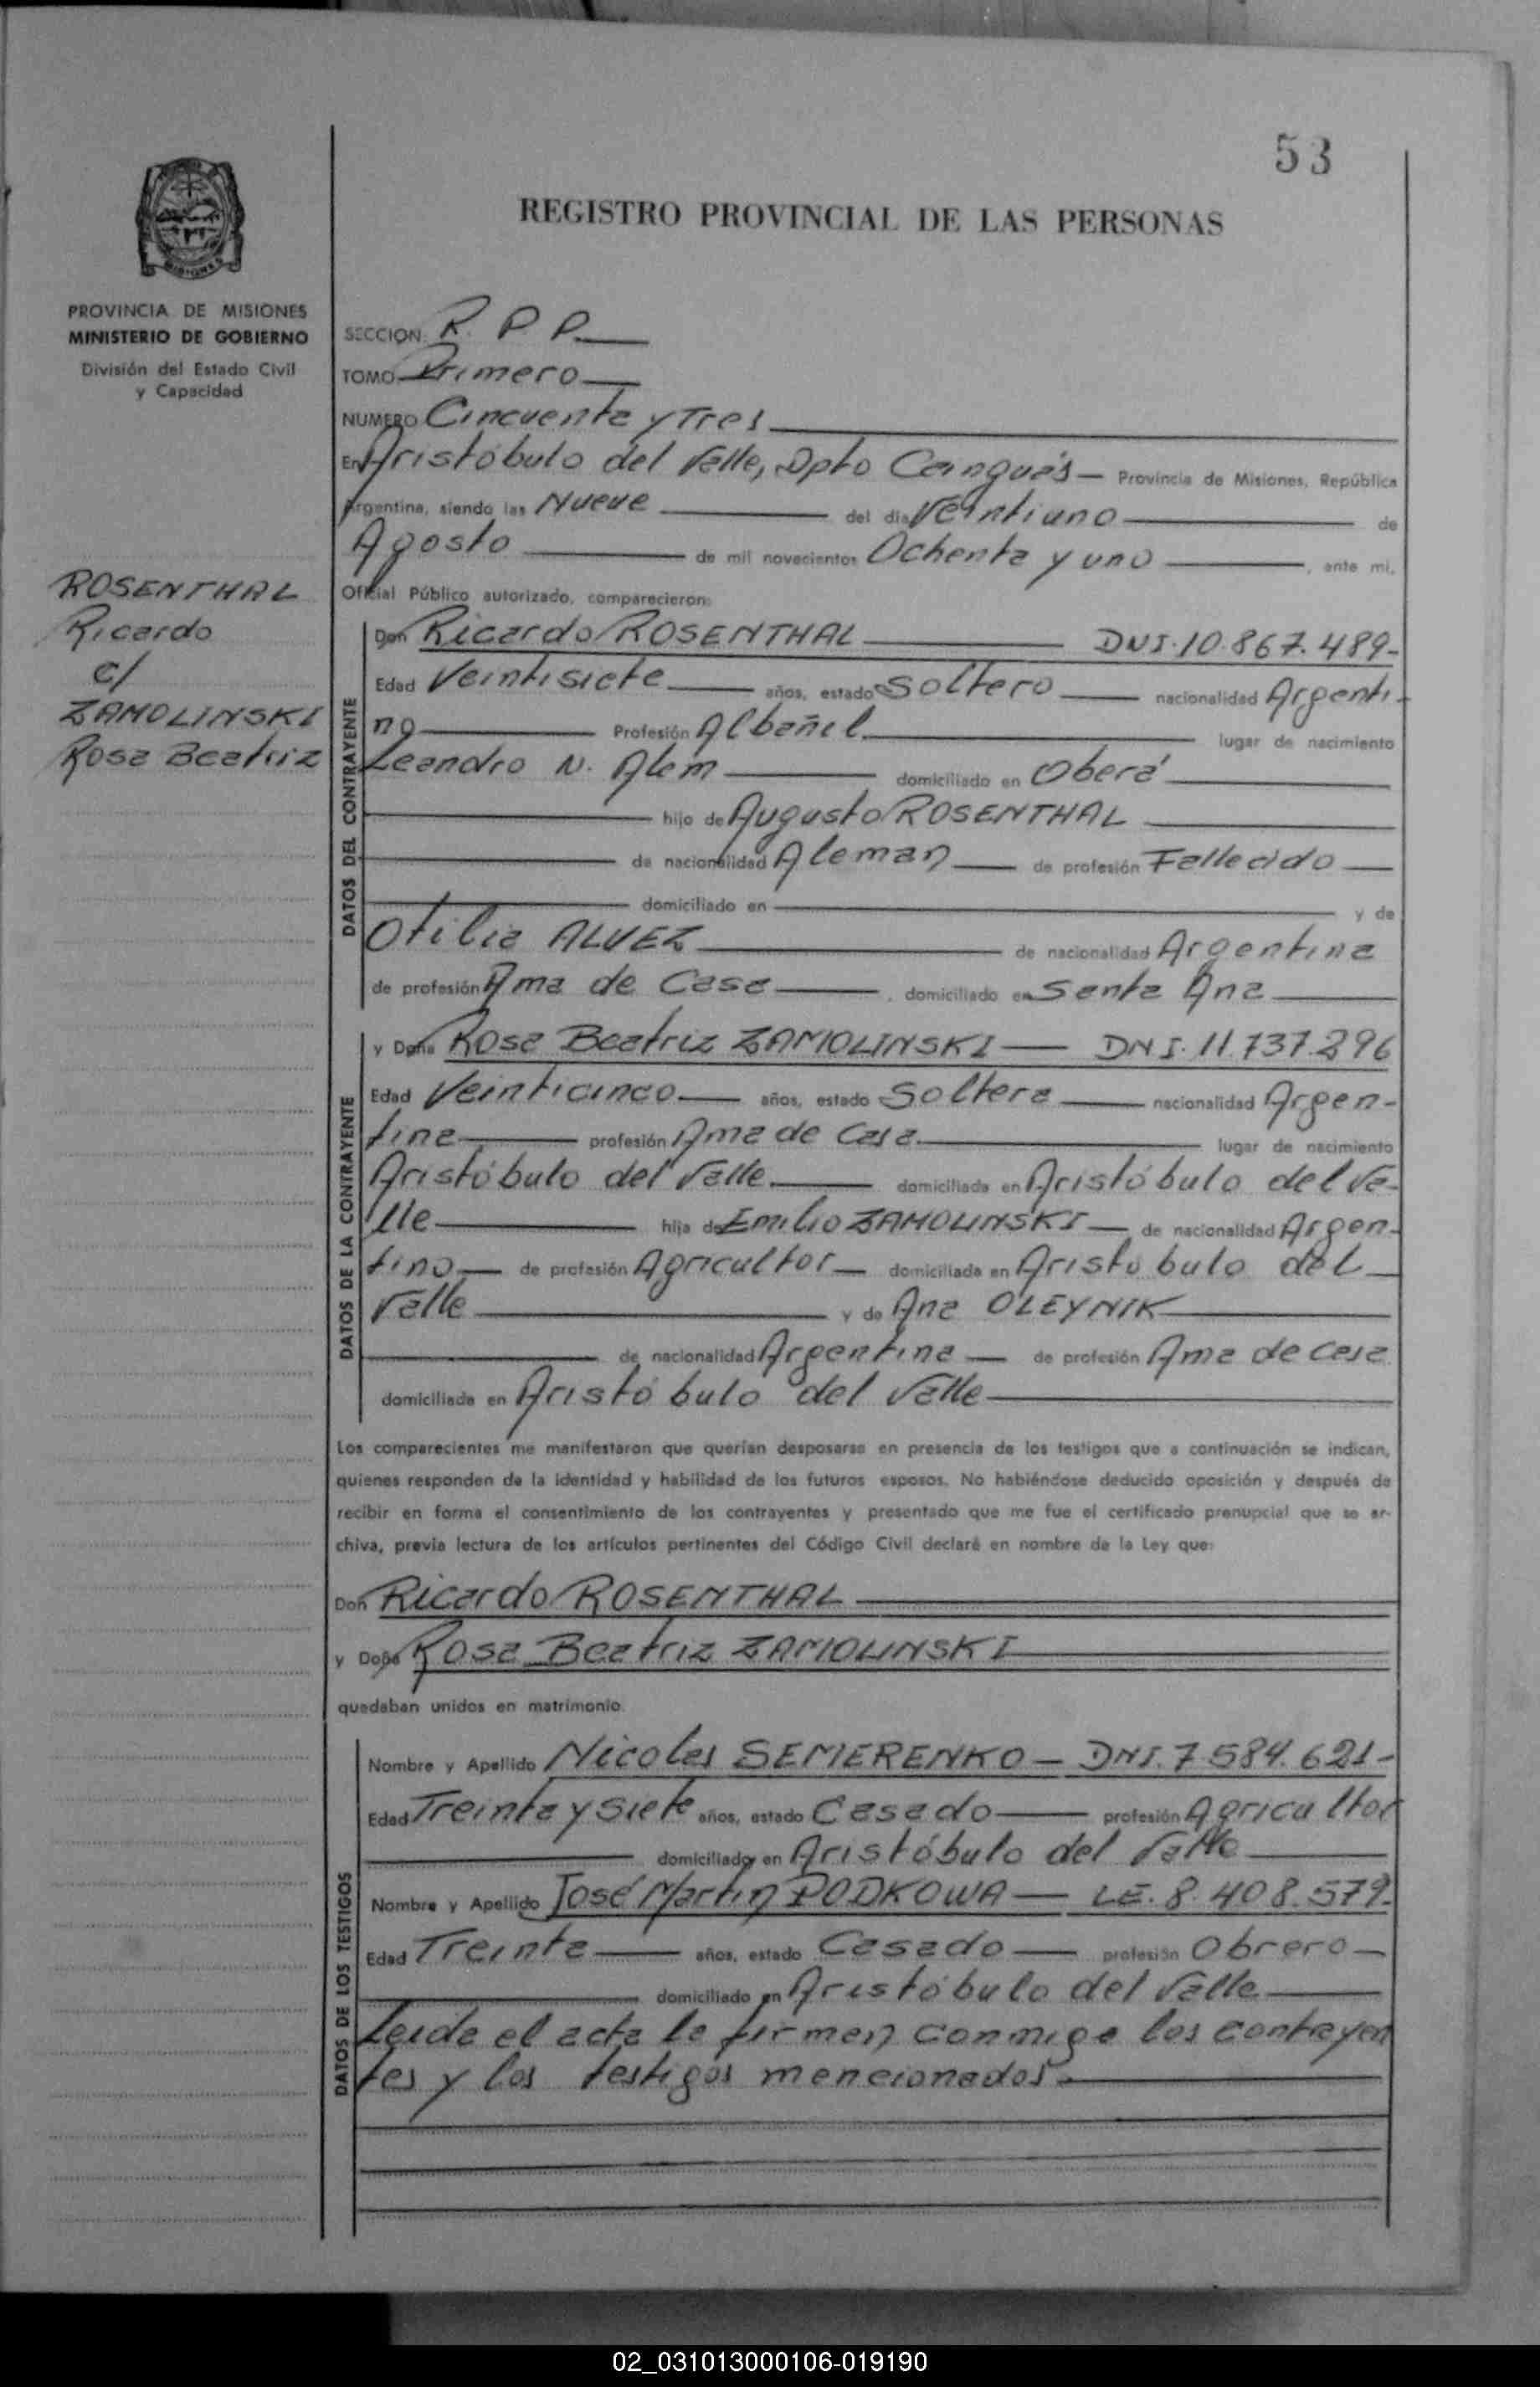 53
REGISTRO PROVINCIAL DE LAS PERSONAS
MISIONES
PROVINCIA DE MISIONES
MINISTERIO DE GOBIERNO
División del Estado Civil
y Capacidad
ROSENTHAL
Ricardo
c/
ZAMOLINSKI
Rosa Beatriz
SECCION: R. P. P.
TOMO Primero
NUMERO Cincuenta y Tres
En Aristóbulo del Valle, Dpto Cainguás Provincia de Misiones, República
Argentina, siendo las Nueve del día Veintiuno de
Agosto de mil novecientos Ochenta y uno, ante mi,
Oficial Público autorizado, comparecieron:
DATOS DEL CONTRAYENTE
Don Ricardo ROSENTHAL DNI. 10.867.489-
Edad Veintisiete años, estado Soltero nacionalidad Argenti-
no Profesión Albañil lugar de nacimiento
Leandro N. Alem domiciliado en Oberá
hijo de Augusto ROSENTHAL
de nacionalidad Aleman de profesión Fallecido
domiciliado en y de
Otilia ALVEZ de nacionalidad Argentina
de profesión Ama de Casa, domiciliado en Santa Ana
DATOS DE LA CONTRAYENTE
y Doña Rosa Beatriz ZAMOLINSKI DNI. 11.737.296
Edad Veinticinco años, estado Soltera nacionalidad Argen-
tina profesión Ama de Casa lugar de nacimiento
Aristóbulo del Valle domiciliada en Aristóbulo del Va-
lle hija de Emilio ZAMOLINSKI de nacionalidad Argen-
tino de profesión Agricultor domiciliada en Aristóbulo del
Valle y de Ana OLEYNIK
de nacionalidad Argentina de profesión Ama de casa
domiciliada en Aristóbulo del Valle
Los comparecientes me manifestaron que querían desposarse en presencia de los testigos que a continuación se indican,
quienes responden de la identidad y habilidad de los futuros esposos. No habiéndose deducido oposición y después de
recibir en forma el consentimiento de los contrayentes y presentado que me fue el certificado prenupcial que se ar-
chiva, previa lectura de los artículos pertinentes del Código Civil declaré en nombre de la Ley que:
Don Ricardo ROSENTHAL
y Doña Rosa Beatriz ZAMOLINSKI
quedaban unidos en matrimonio.
DATOS DE LOS TESTIGOS
Nombre y Apellido Nicolas SEMERENKO - DNI. 7.584.621-
Edad Treinta y Siete años, estado Casado profesión Agricultor
domiciliado en Aristóbulo del Valle
Nombre y Apellido José Martin PODKOWA - LE. 8.408.579.
Edad Treinta años, estado Casado profesión Obrero
domiciliado en Aristóbulo del Valle
Leida el acta la firman conmigo los contrayen
tes y los testigos mencionados
02_031013000106-019190